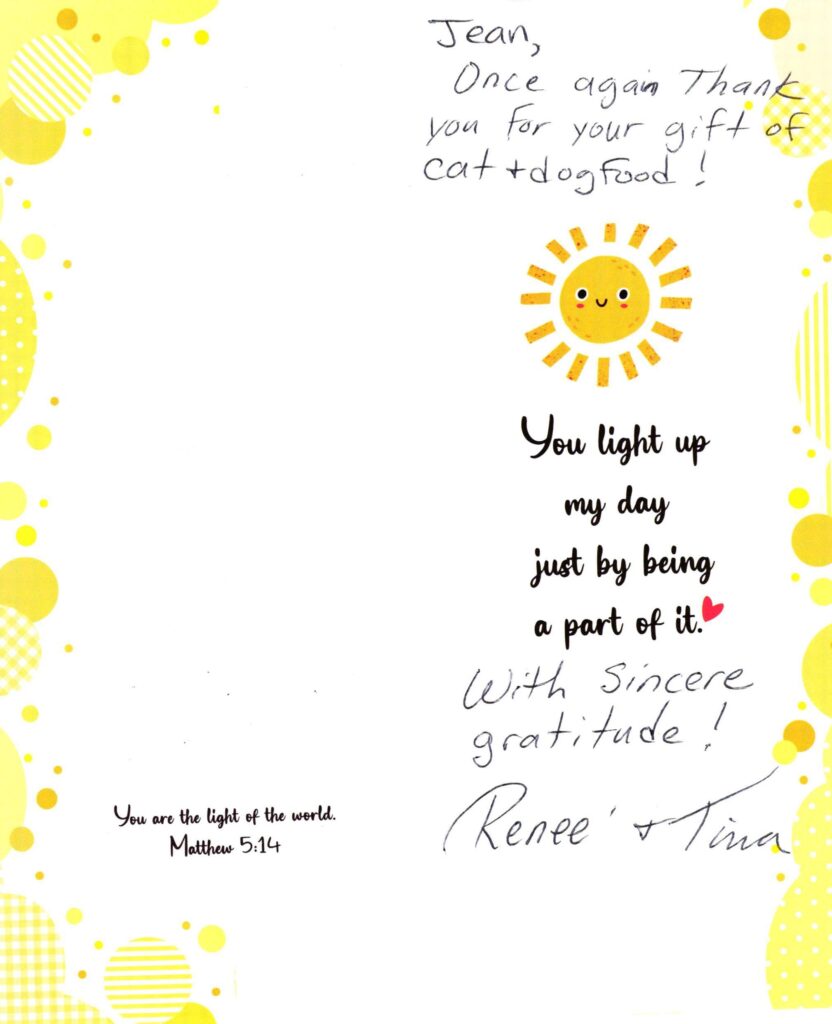 Jean,
Once again Thank
you for your gift of
cat + dog Food!
You light up
my day
just by being
a part of it.
With Sincere
gratitude!
Renee' + Tina
You are the light of the world.
Matthew 5:14